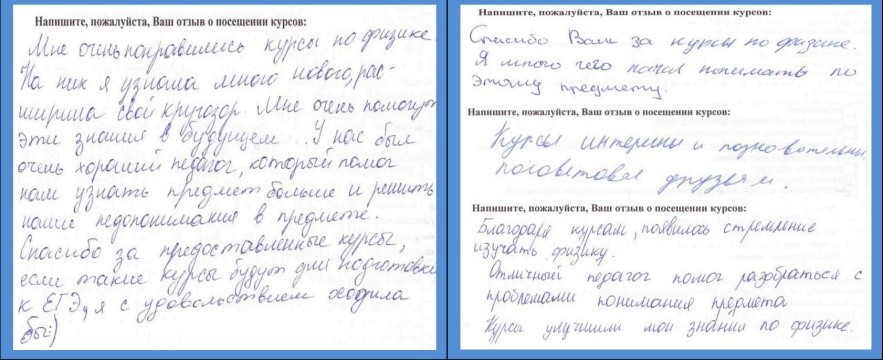 Напишите, пожалуйста, Ваш отзыв о посещении курсов:
Мне очень понравились курсы по физике.
На них я узнала много нового, рас-
ширила свой кругозор. Мне очень помогут
эти знания в будущем. У нас был
очень хороший педагог, который помог
нам узнать предмет больше и решить
наши недопонимания в предмете.
Спасибо за предоставленные курсы,
если такие курсы будут для подготовки
к ЕГЭ, я с удовольствием ходила
бы:)
Напишите, пожалуйста, Ваш отзыв о посещении курсов:
Спасибо Вам за курсы по физике.
Я много чего начал понимать по
этому предмету.
Напишите, пожалуйста, Ваш отзыв о посещении курсов:
Курсы интересны и позновательны
посоветовал друзьям.
Напишите, пожалуйста, Ваш отзыв о посещении курсов:
Благодаря курсам, появилось стремление
изучать физику.
Отличный педагог помог разобраться с
проблемами понимания предмета
Курсы улучшили мои знания по физике.